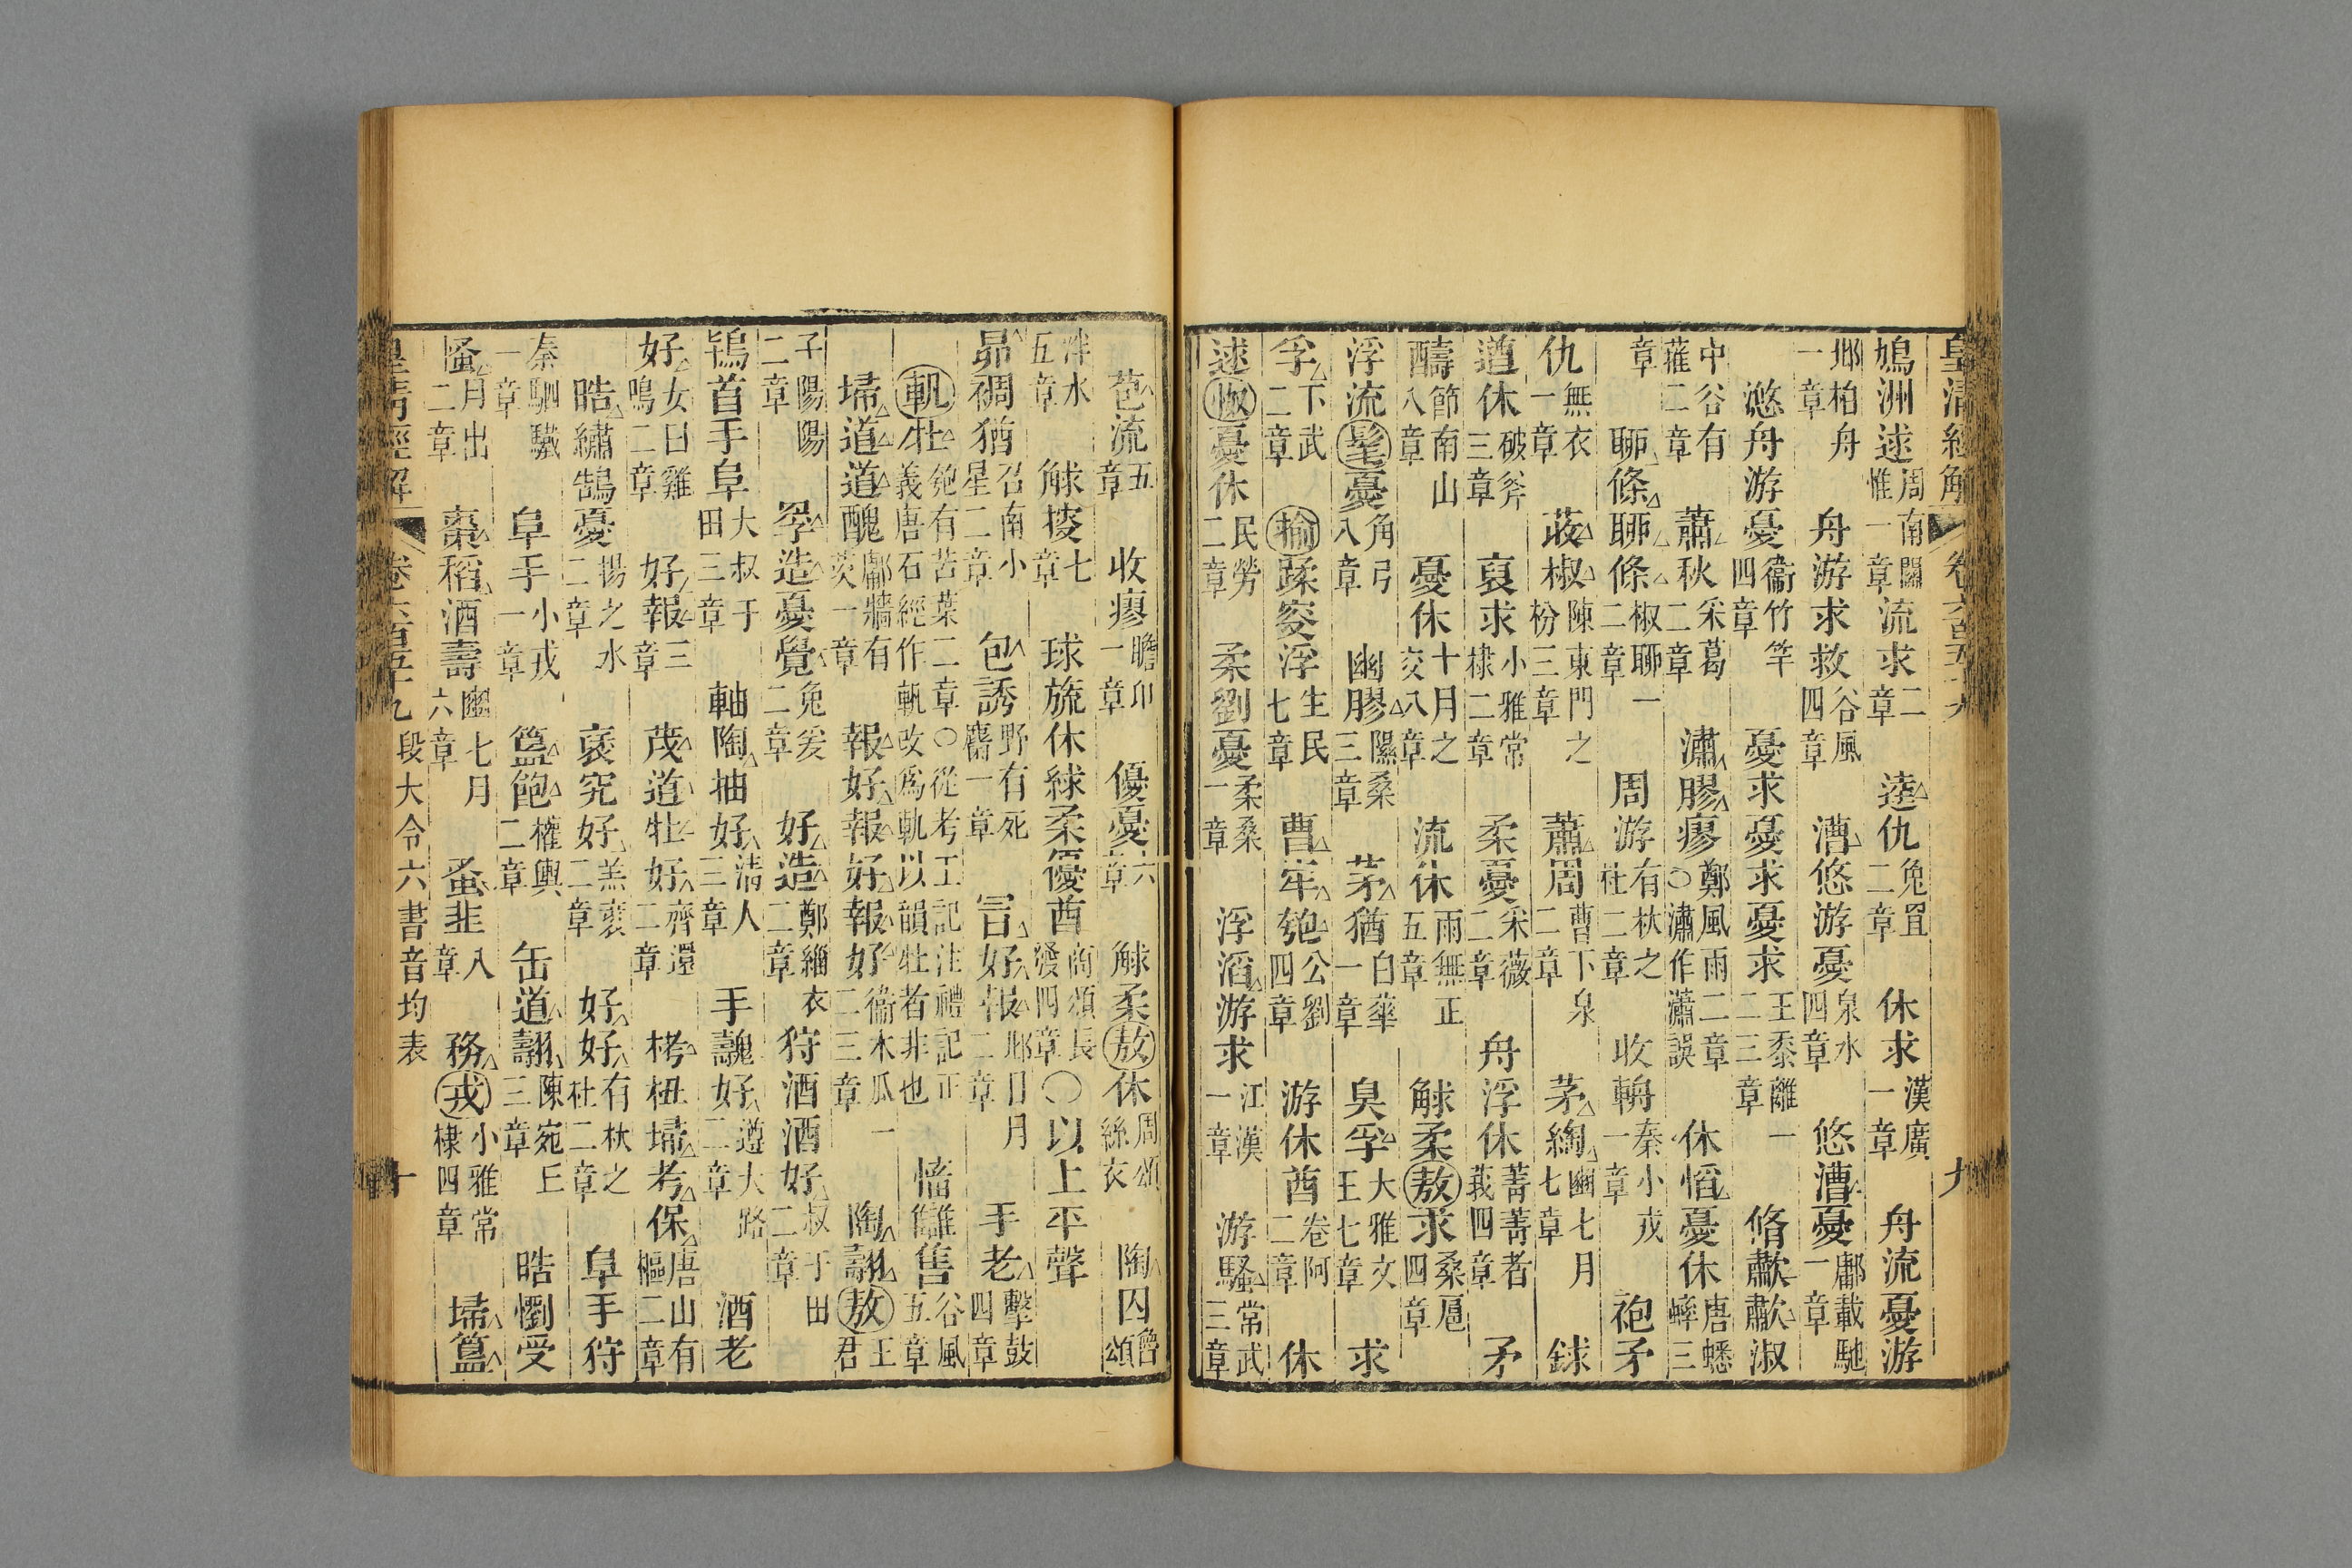 皇清經解 卷六百五十九 九
鳩洲逑周南關惟一章 流求二章 逵仇兔罝二章 休求漢廣一章 舟流憂游
邶柏舟一章 舟游求救谷風四章 漕悠游憂泉水四章 悠漕憂鄘載馳一章
滺舟游憂衞竹竿四章 憂求憂求憂求王黍離一二三章 脩歗歗淑
中谷有蓷二章 蕭秋采葛二章 瀟膠瘳鄭風雨二章○瀟作潚誤 休慆憂休唐蟋蟀三
章 聊條聊條椒聊一二章 周游有杕之杜二章 收輈秦小戎一章 袍矛
仇無衣一章 荍椒陳東門之枌三章 蕭周曹下泉二章 茅綯豳七月七章 銶
遒休破斧三章 裒求小雅常棣二章 柔憂采薇二章 舟浮休菁菁者莪四章 矛
醻節南山八章 憂休十月之交八章 流休雨無正五章 觩柔敖求桑扈四章
浮流髦憂角弓八章 幽膠隰桑三章 茅猶白華一章 臭孚大雅文王七章 求
孚下武二章 揄蹂叜浮生民七章 曹牢匏公劉四章 游休酋卷阿二章 休
逑怓憂休民勞二章 柔劉憂柔桑一章 浮滔游求江漢一章 游騷常武三章
苞流五章 收瘳瞻卬一章 優憂六章 觩柔敖休周頌絲衣 陶囚魯頌
泮水五章 觩搜七章 球旒休絿柔優酋商頌長發四章○以上平聲
昴裯猶召南小星二章 包誘野有死麕一章 冒好報邶日月二章 手老擊鼓四章
軓牡匏有苦葉二章○從考工記注禮記正義唐石經作軓改爲軌以韻牡者非也 慉讎售谷風五章
埽道道醜鄘牆有茨一章 報好報好報好衞木瓜一二三章 陶翿敖王君
子陽陽二章 罦造憂覺兔爰二章 好造鄭緇衣二章 狩酒酒好叔于田二章
鴇首手阜大叔于田三章 軸陶抽好清人三章 手魗好遵大路二章 酒老
好女曰雞鳴二章 好報三章 茂道牡好齊還二章 栲杻埽考保唐山有樞二章
皓繡鵠憂揚之水二章 褎究好羔裘二章 好好有杕之杜二章 阜手狩
秦駟驖一章 阜手小戎一章 簋飽權輿二章 缶道翿陳宛丘三章 皓懰受
慅月出二章 棗稻酒壽豳七月六章 蚤韭八章 務戎小雅常棣四章 埽簋
皇清經解 卷六百五十九 段大令六書音均表 十